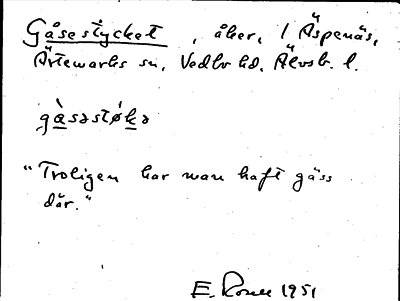 Gåsestycket, åker, 1 Äspenäs,
Ärtemarks sn, Vedbo hd, Älvsb. l.
gàsəstø̀kə
"Troligen har man haft gäss
där."
E. 1951